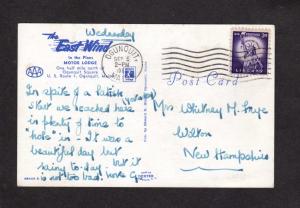 Wednesday
The
East Wind
in the Pines
MOTOR LODGE
One half mile north of
Ogunquit Square
U. S. Route 1, Ogunquit, Maine
AAA
OGUNQUIT,
SEP 5
2-PM
Post Card
LIBERTY
In spite of a latish
start we reached here
in plenty of time to
"hole" in. It was a
beautiful day but
rainy to-day. but it
is not too bad. love G
Mrs Whitney M.
Wilton
New Hampshire